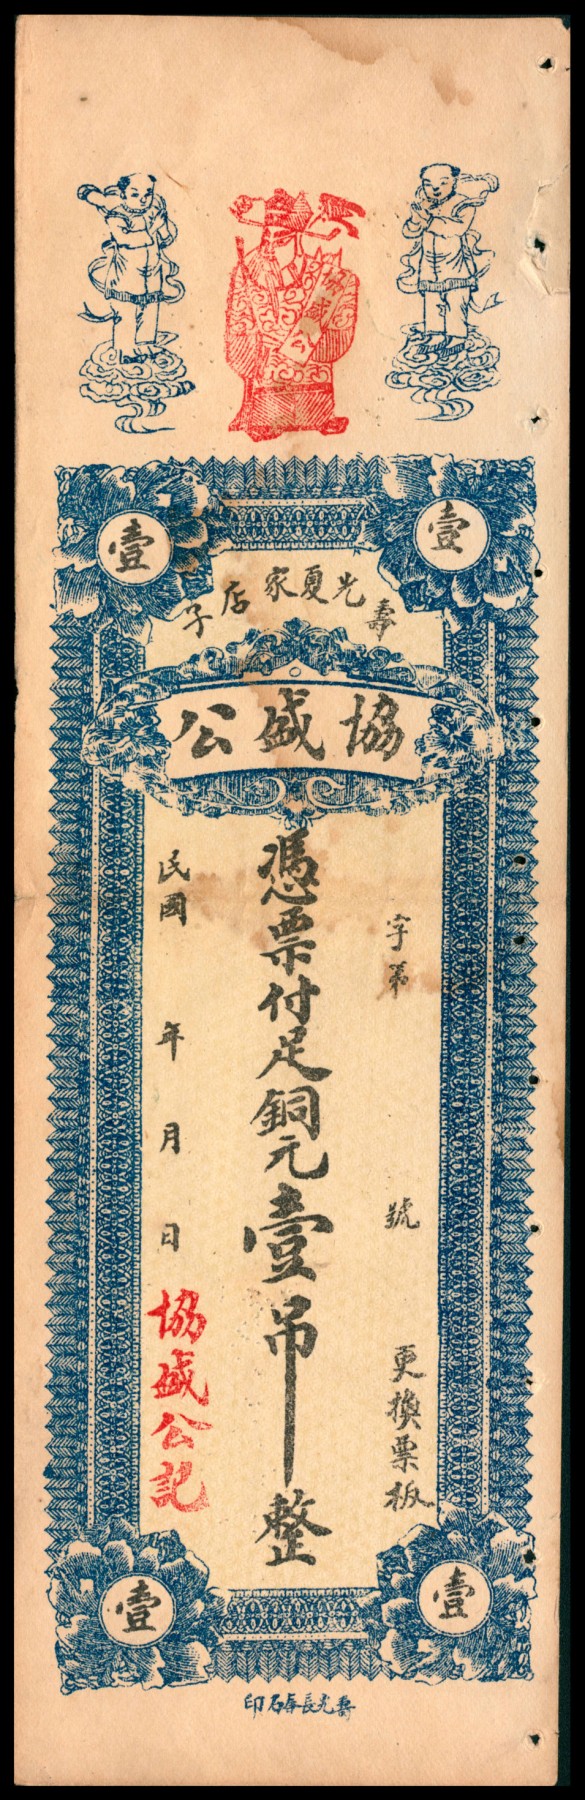 協盛公
壹
壹
壽光夏家店子
協盛公
字第 號
更換票板
憑票付足銅元壹吊整
民國 年 月 日
協盛公記
壹
壹
壽光長春石印